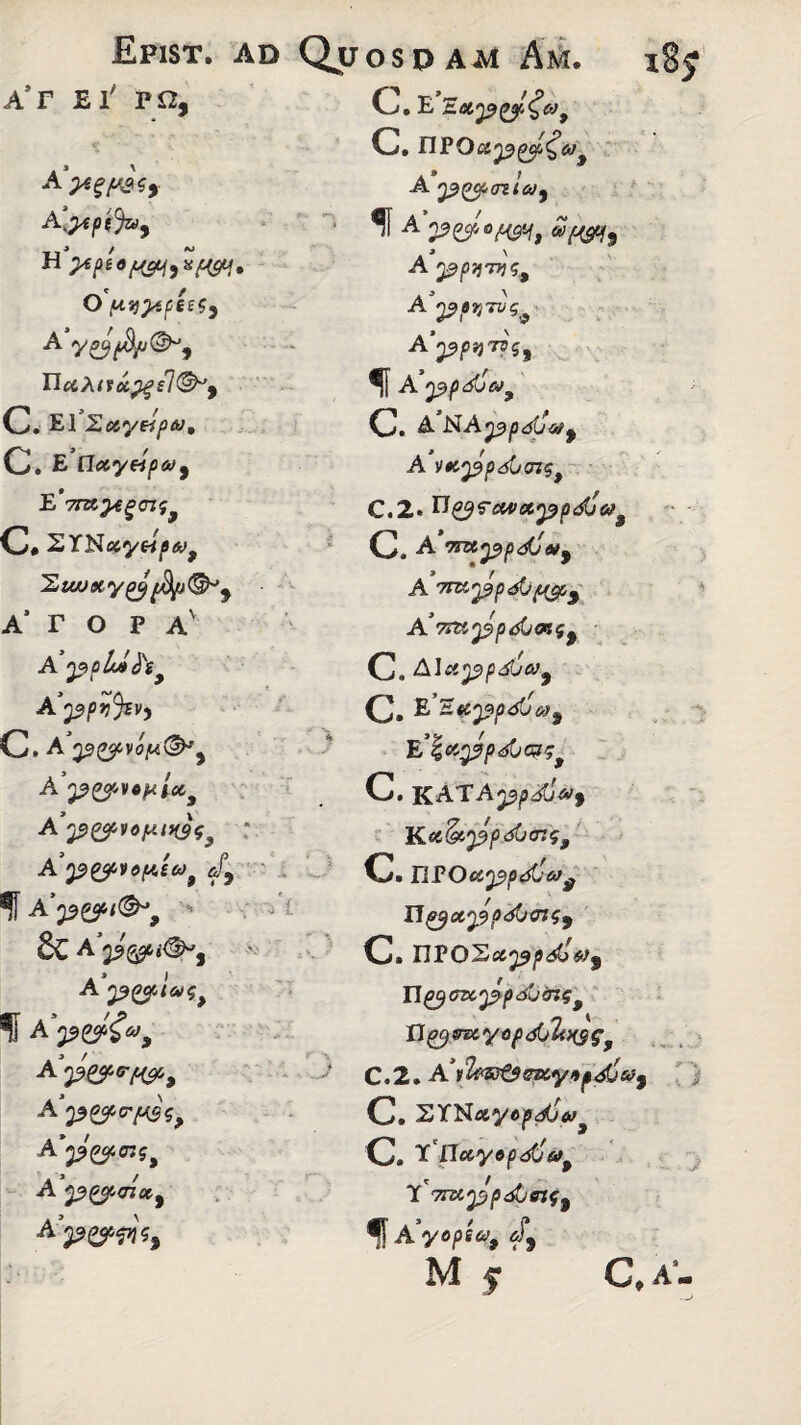 EPIST. AD QUOSDAM AM. 185
Α᾿ΓΕΙ΄ΡΩ,
Α᾿γερμὸς,
Α᾿γερέθω,
Η᾿γερέομαι, ȣμαι.
Ο῾μηγερέες,
Α᾿γορμὸς,
Παλινάγρετος,
C. ΕΙ᾿Σαγείρω.
C. Ε᾿Παγείρω,
Ε᾿πάγερσις,
C. ΣΥΝαγείρω,
Α᾿ΓΟΡΑ`
Α᾿γορῆθεν,
C. Α᾿γορανόμος,
Α᾿γορανομία,
Α᾿γορανομικὸς,
Α᾿γορανομέω,
¶ Α᾿γοραῖος,
& Α᾿γόραιος,
Α᾿γοραίως,
¶ Α᾿γοράζω,
Α᾿γόρασμα,
Α᾿γορασμὸς,
Α᾿γόρασις,
Α᾿γορασία,
Α᾿γοραστὴς,
C. Ε᾿Ξαγοράζω,
C. ΠΡΟαγοράζω,
Α᾿γορασίω,
¶ Α᾿γοράομαι, ῶμαι,
Α᾿γορητὴς,
Α᾿γορητὺς,
Α᾿γορητὸς,
¶ Α᾿γορεύω,
C. Α᾿ΝΑγορεύω,
Α᾿ναγόρευσις,
C.2. Προσαναγορεύω,
C. Α᾿παγορεύω,
Α᾿παγόρευμα,
Α᾿παγόρευσις,
C. ΔΙαγορεύω,
C. Ε᾿Ξαγορεύω,
Ε᾿ξαγόρευσις,
C. ΚΑΤΑγορεύω,
Καταγόρευσις,
C. ΠΡΟαγορεύω,
Προαγόρευσις,
C. ΠΡΟΣαγορεύω,
Προσαγόρευσις,
Προσαγορευτικὸς,
C.2. Α᾿ντιπροσαγορεύω,
C. ΣΥΝαγορεύω,
C. Υ῾Παγορεύω,
Υ῾παγόρευσις,
¶ Α᾿γορέω,
M 5 C. Α᾿-